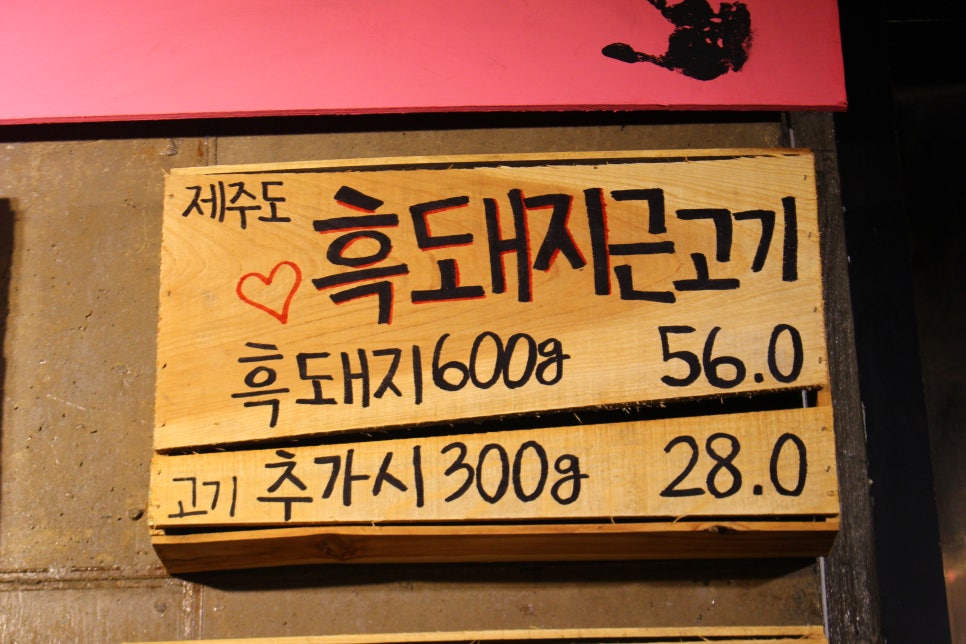 제주도
흑돼지근고기
흑돼지 600g 56.0
고기 추가시 300g 28.0